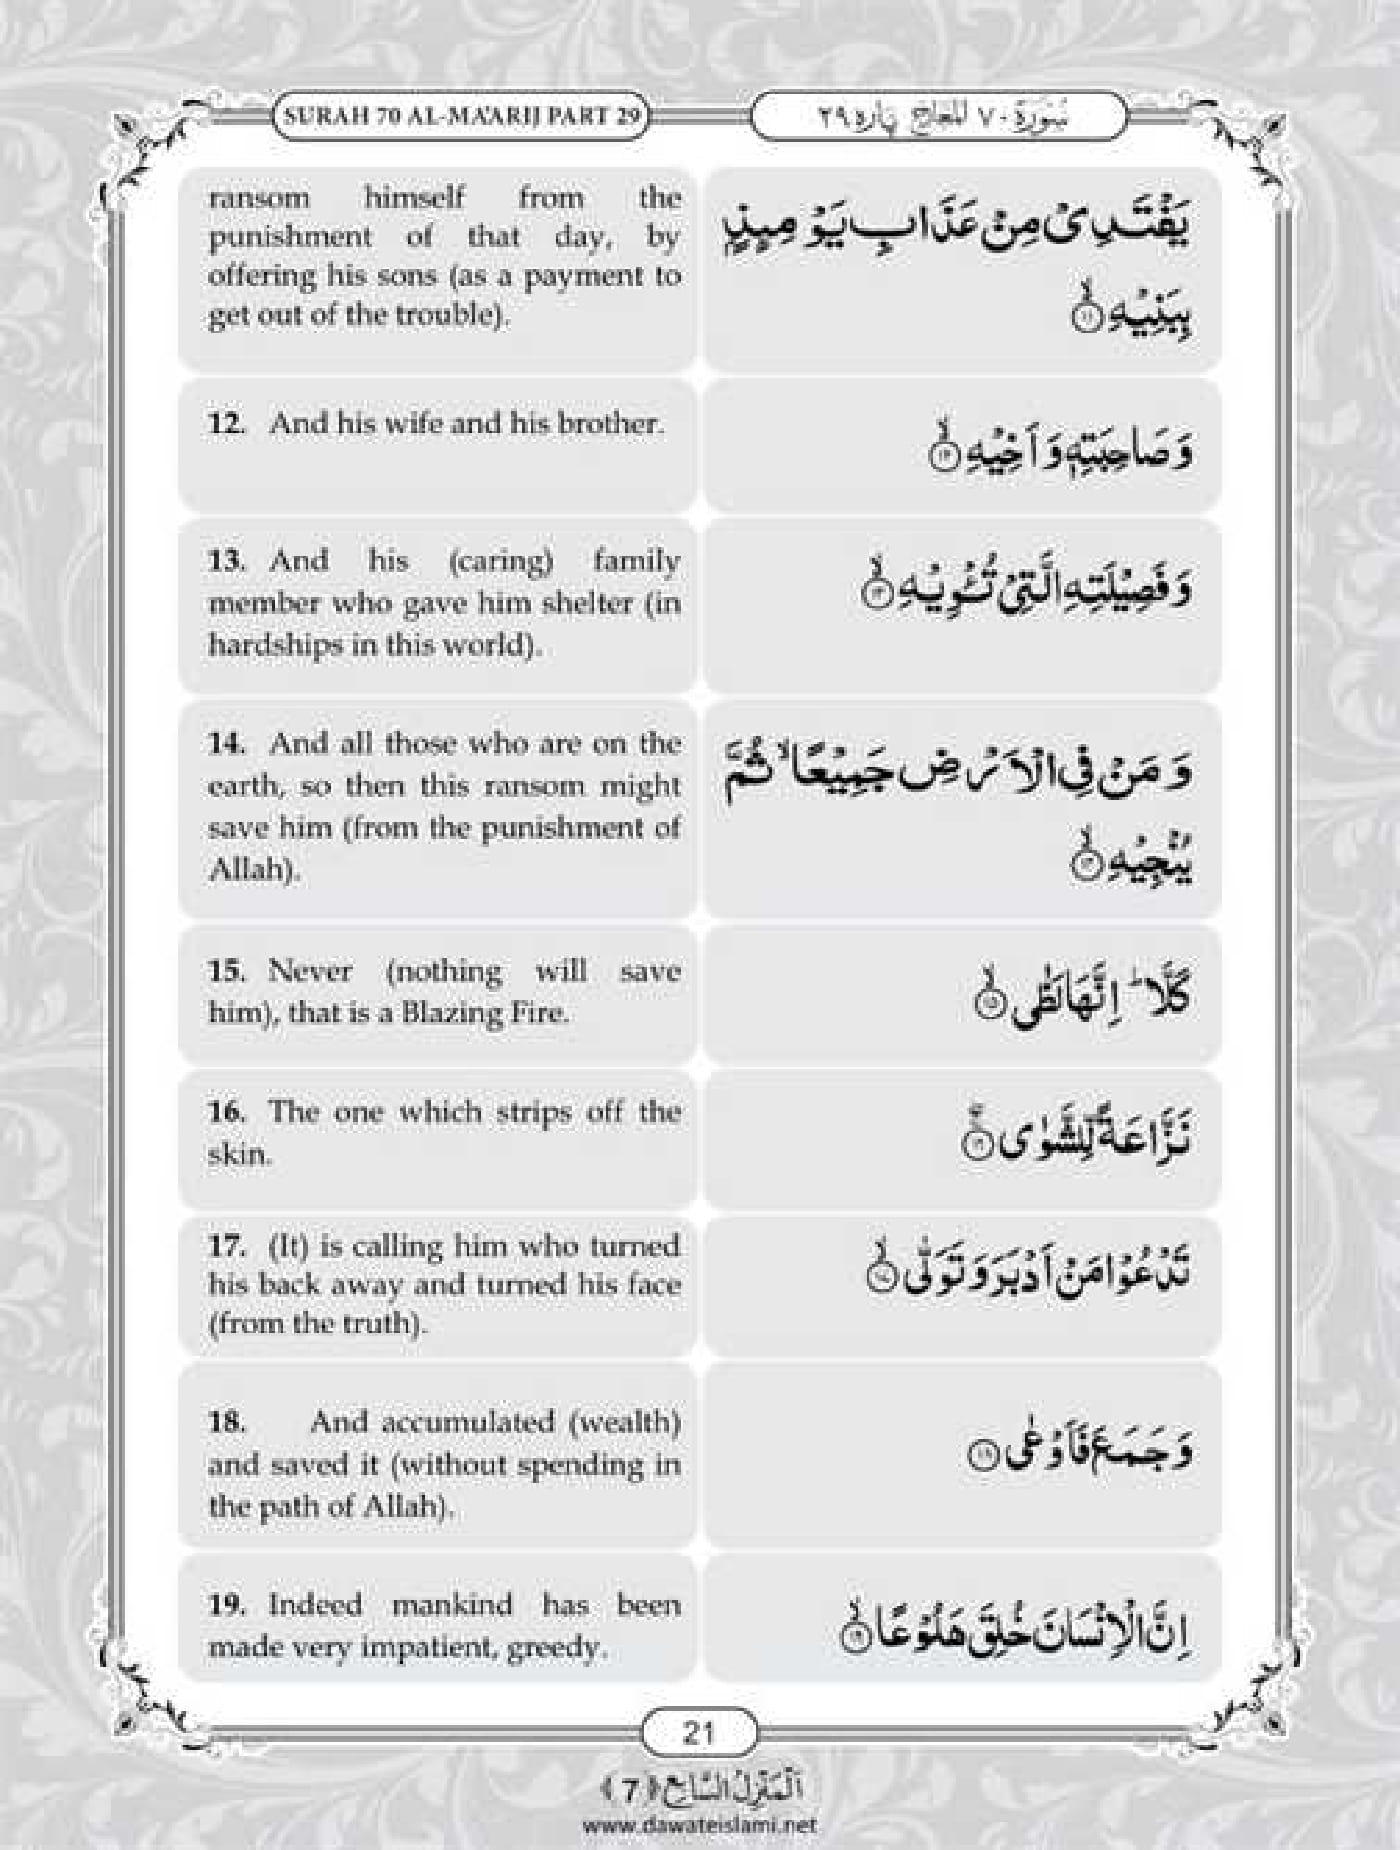 SURAH 70 AL-MA'ARIJ PART 29
سُوْرَة ٧٠ المعارج پاره ٢٩
ransom himself from the
punishment of that day, by
offering his sons (as a payment to
get out of the trouble).
يَفْتَدِىْ مِنْ عَذَابِ يَوْمِىِٕذٍۭ
بِبَنِيْهِۙ۝۱۱
12. And his wife and his brother.
وَ صَاحِبَتِهٖ وَ اَخِيْهِۙ۝۱۲
13. And his (caring) family
member who gave him shelter (in
hardships in this world).
وَ فَصِيْلَتِهِ الَّتِىْ تُــْٔوِيْهِۙ۝۱۳
14. And all those who are on the
earth, so then this ransom might
save him (from the punishment of
Allah).
وَ مَنْ فِى الْاَرْضِ جَمِيْعًاۙ ثُمَّ
يُنْجِيْهِۙ۝۱۴
15. Never (nothing will save
him), that is a Blazing Fire.
كَلَّاؕ اِنَّهَا لَظٰىۙ۝۱۵
16. The one which strips off the
skin.
نَزَّاعَةً لِّلشَّوٰىۚۖ۝۱۶
17. (It) is calling him who turned
his back away and turned his face
(from the truth).
تَدْعُوْا مَنْ اَدْبَرَ وَ تَوَلّٰىۙ۝۱۷
18. And accumulated (wealth)
and saved it (without spending in
the path of Allah).
وَ جَمَعَ فَاَوْعٰى۝۱۸
19. Indeed mankind has been
made very impatient, greedy.
اِنَّ الْاِنْسَانَ خُلِقَ هَلُوْعًاۙ۝۱۹
21
اَلْمَنْزِلُ السَّابِع ﴿7﴾
www.dawateislami.net